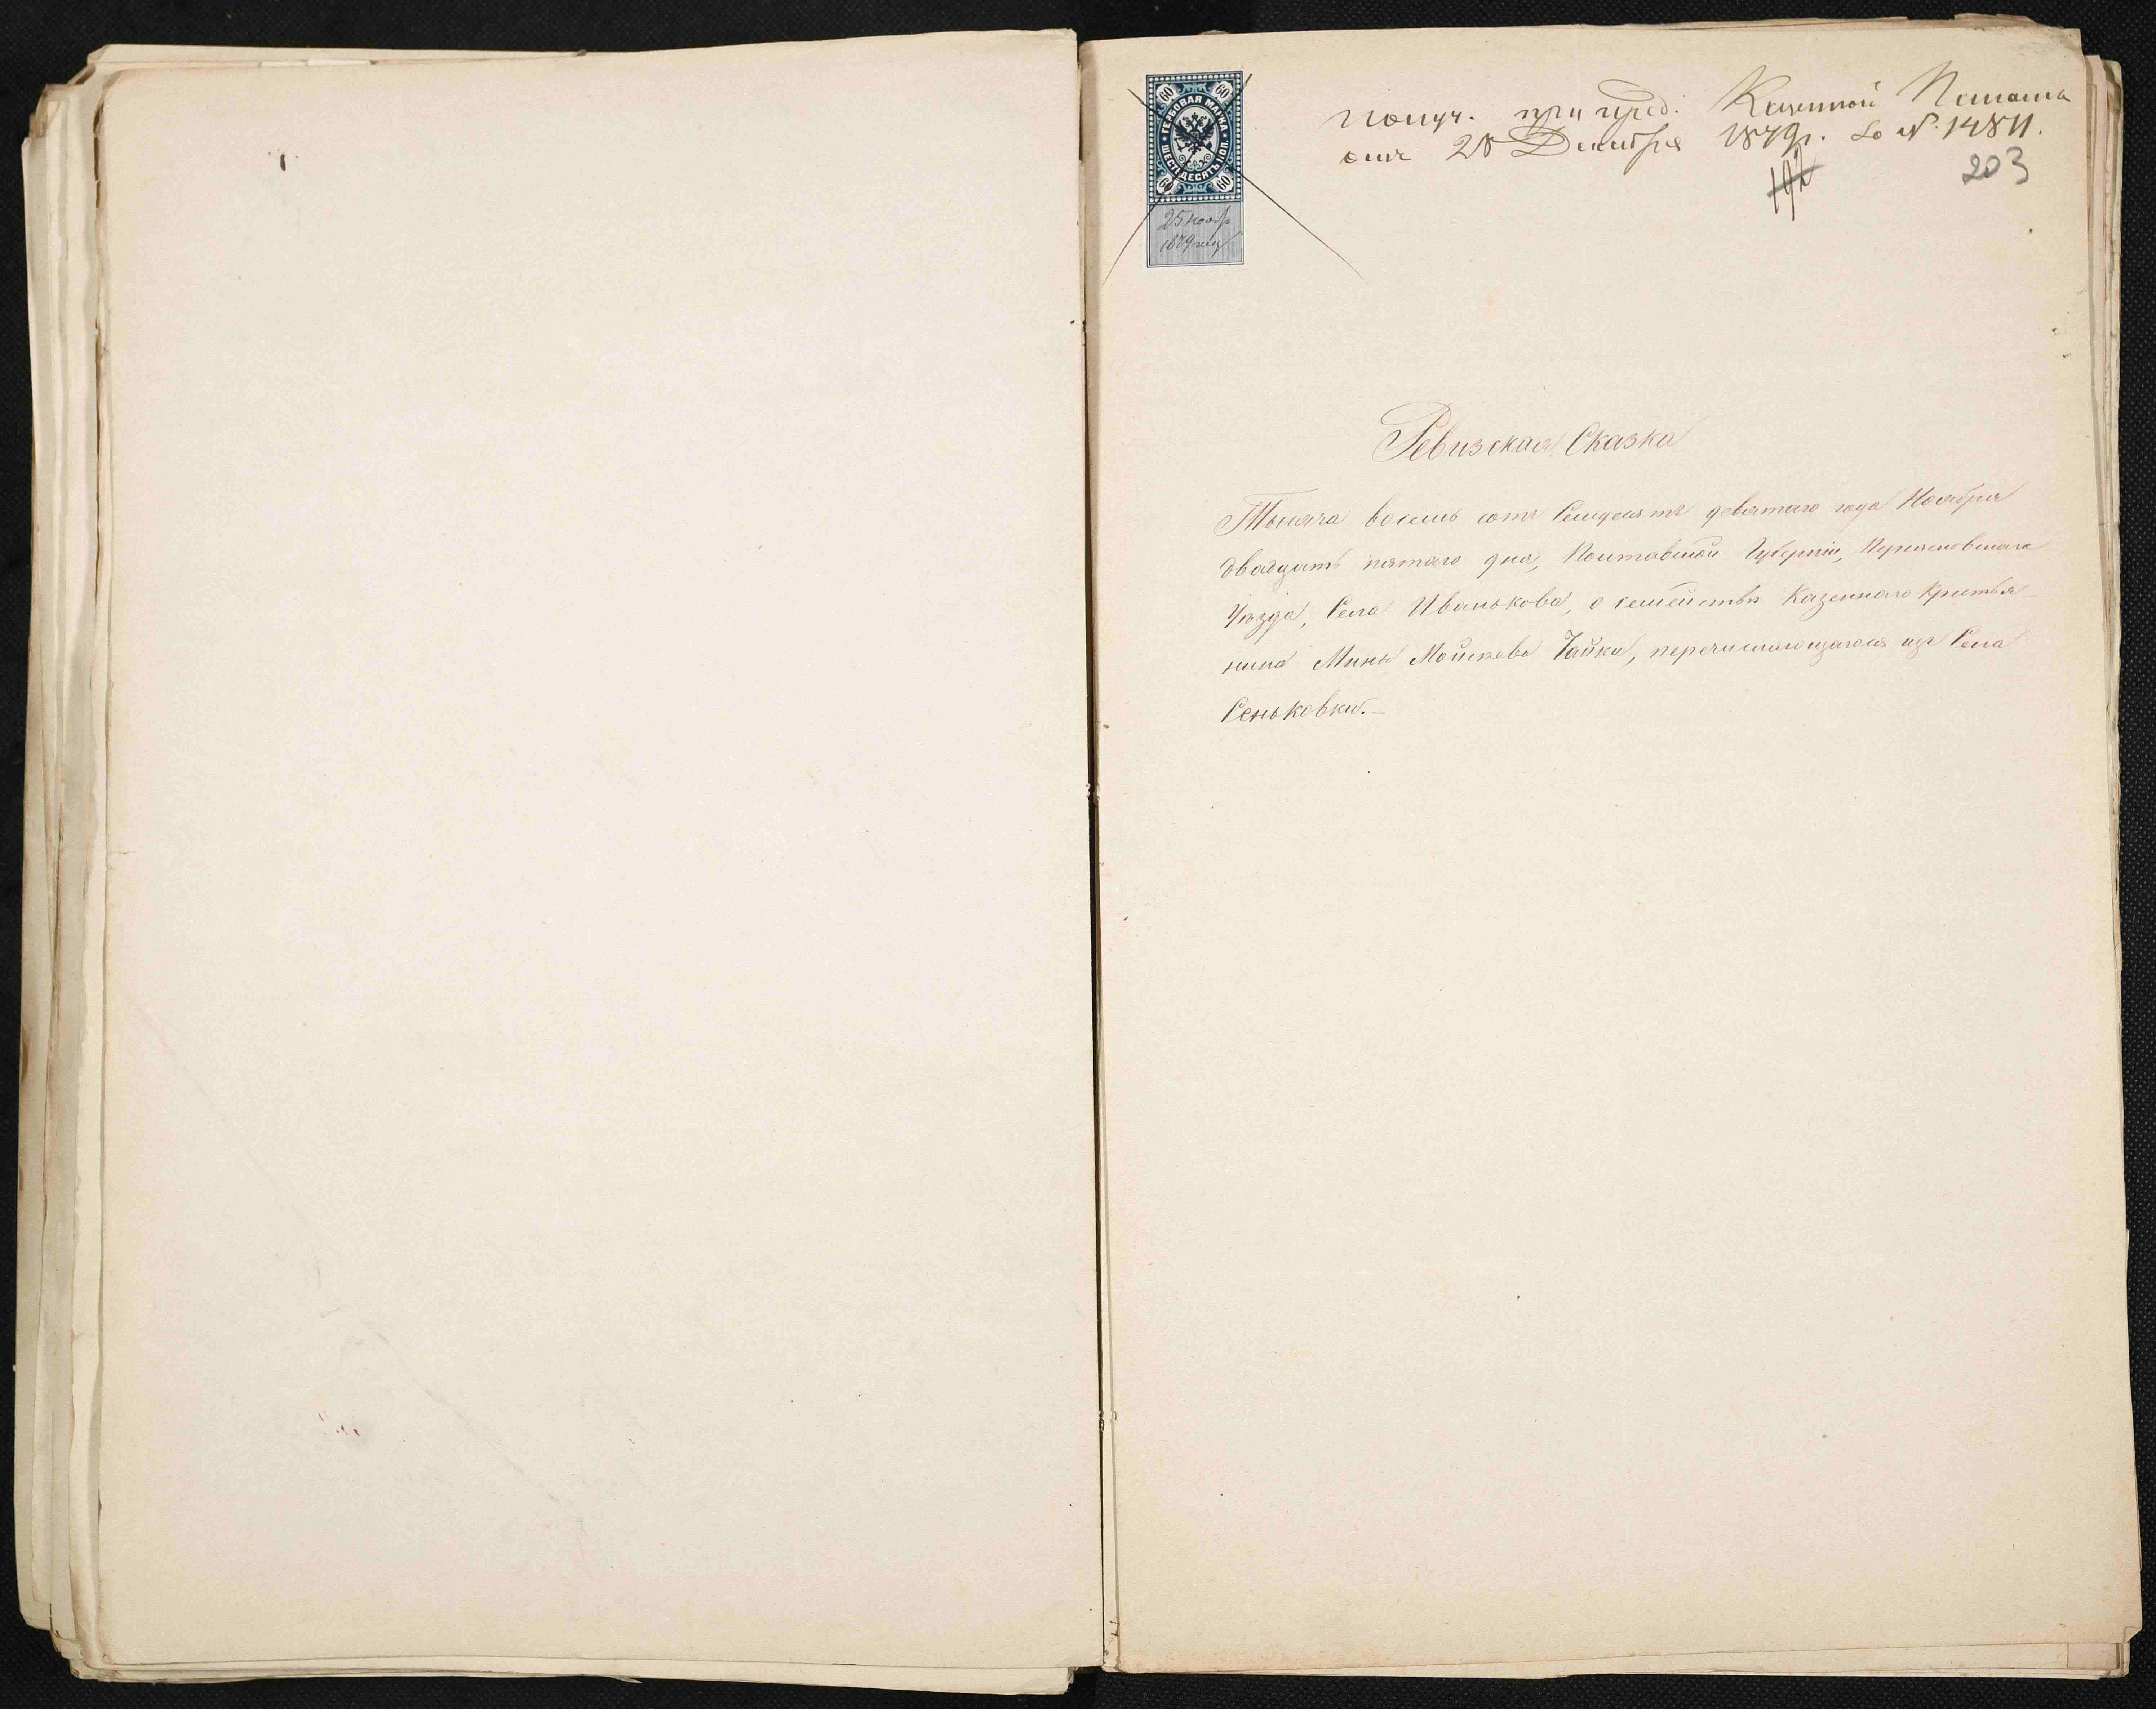 60 60
ГЕРБОВАЯ МАРКА
ШЕСТЬДЕСЯТЪ КОП.
60 60
25 нояб.
1879 года
Получ. при пред. Казенной Палаты
отъ 28 Декабря 1879 г. за №. 14811.
192
203
Ревизская Сказка
Тысяча восемь сотъ Семдесятъ девятаго года Ноября
двадцать пятаго дня, Полтавской Губерніи, Переяславскаго
Уѣзда, Села Иванькова, о семействѣ Казеннаго Крестья-
нина Мины Чайки, перечисляющагося изъ Села
Сеньковки.—